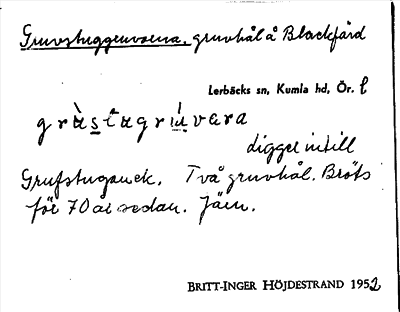 Gruvstuggruvorna, gruvhål å Blackfärd
Lerbäcks sn, Kumla hd, Ör. l
gràstugrúvara
ligger intill
Grufstugan k. Två gruvhål. Bröts
för 70 år sedan. Järn.
BRITT-INGER HÖJDESTRAND 1952